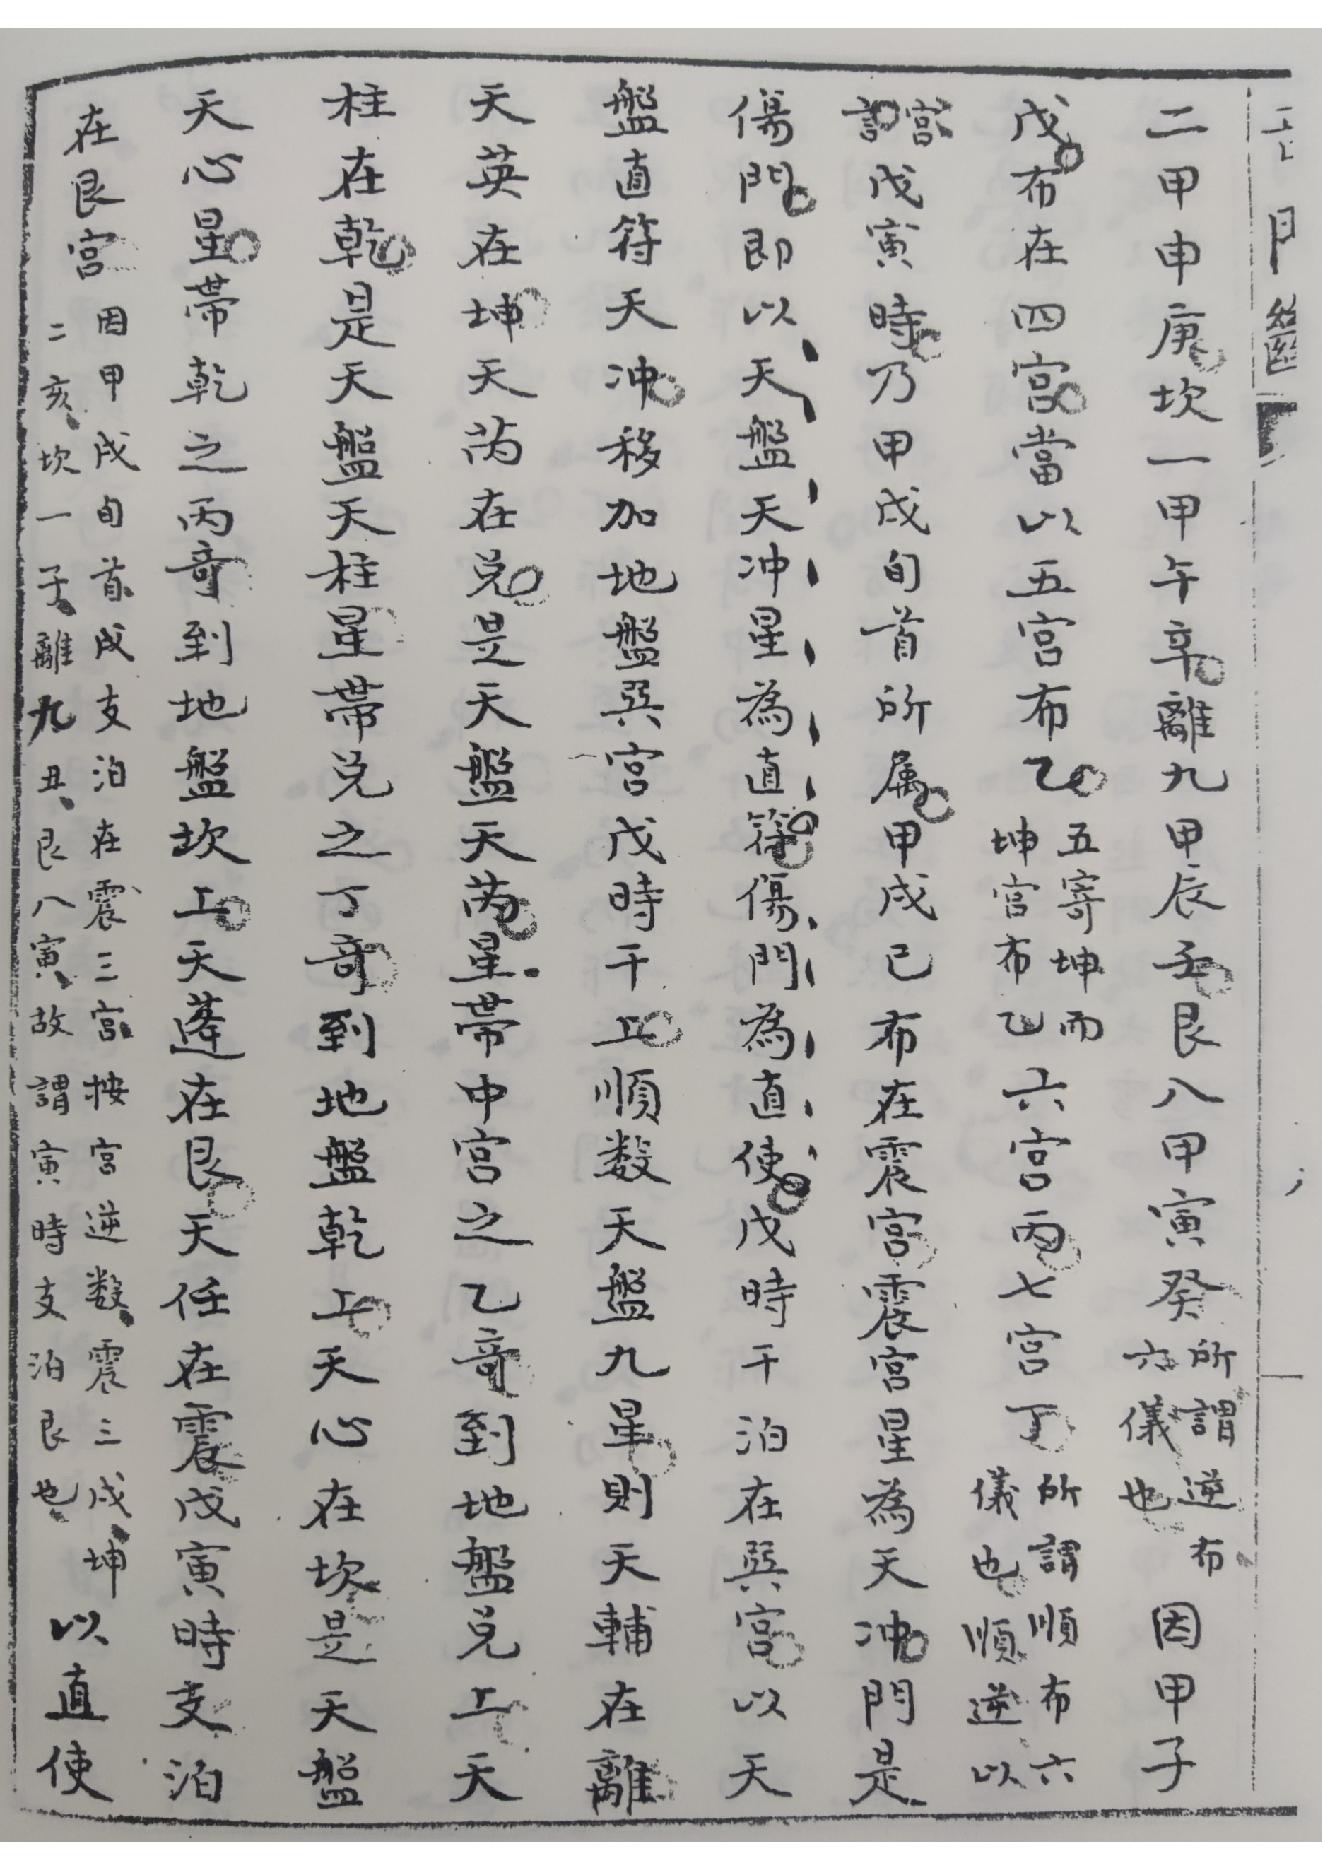 二甲申庚坎一甲午辛離九甲辰壬艮八甲寅癸所謂逆布六儀也因甲子
戊布在四宮當以五宮布乙五寄坤而坤宮布乙六宮丙七宮丁所謂順布六儀也順逆以
宮言戊寅時乃甲戌旬首所属甲戌己布在震宮震宮星為天冲門是
傷門即以天盤天冲星為直符傷門為直使戊時干泊在巽宮以天
盤直符天冲移加地盤巽宮戊時干上順数天盤九星則天輔在離
天英在坤天芮在兌是天盤天芮星帶中宮之乙奇到地盤兌上天
柱在乾是天盤天柱星帶兌之丁奇到地盤乾上天心在坎是天盤
天心星帶乾之丙奇到地盤坎上天蓬在艮天任在震戊寅時支泊
在艮宮因甲戌旬首戌支泊在震三宮按宮逆数震三戌坤二亥坎一子離九丑艮八寅故謂寅時支泊艮也以直使